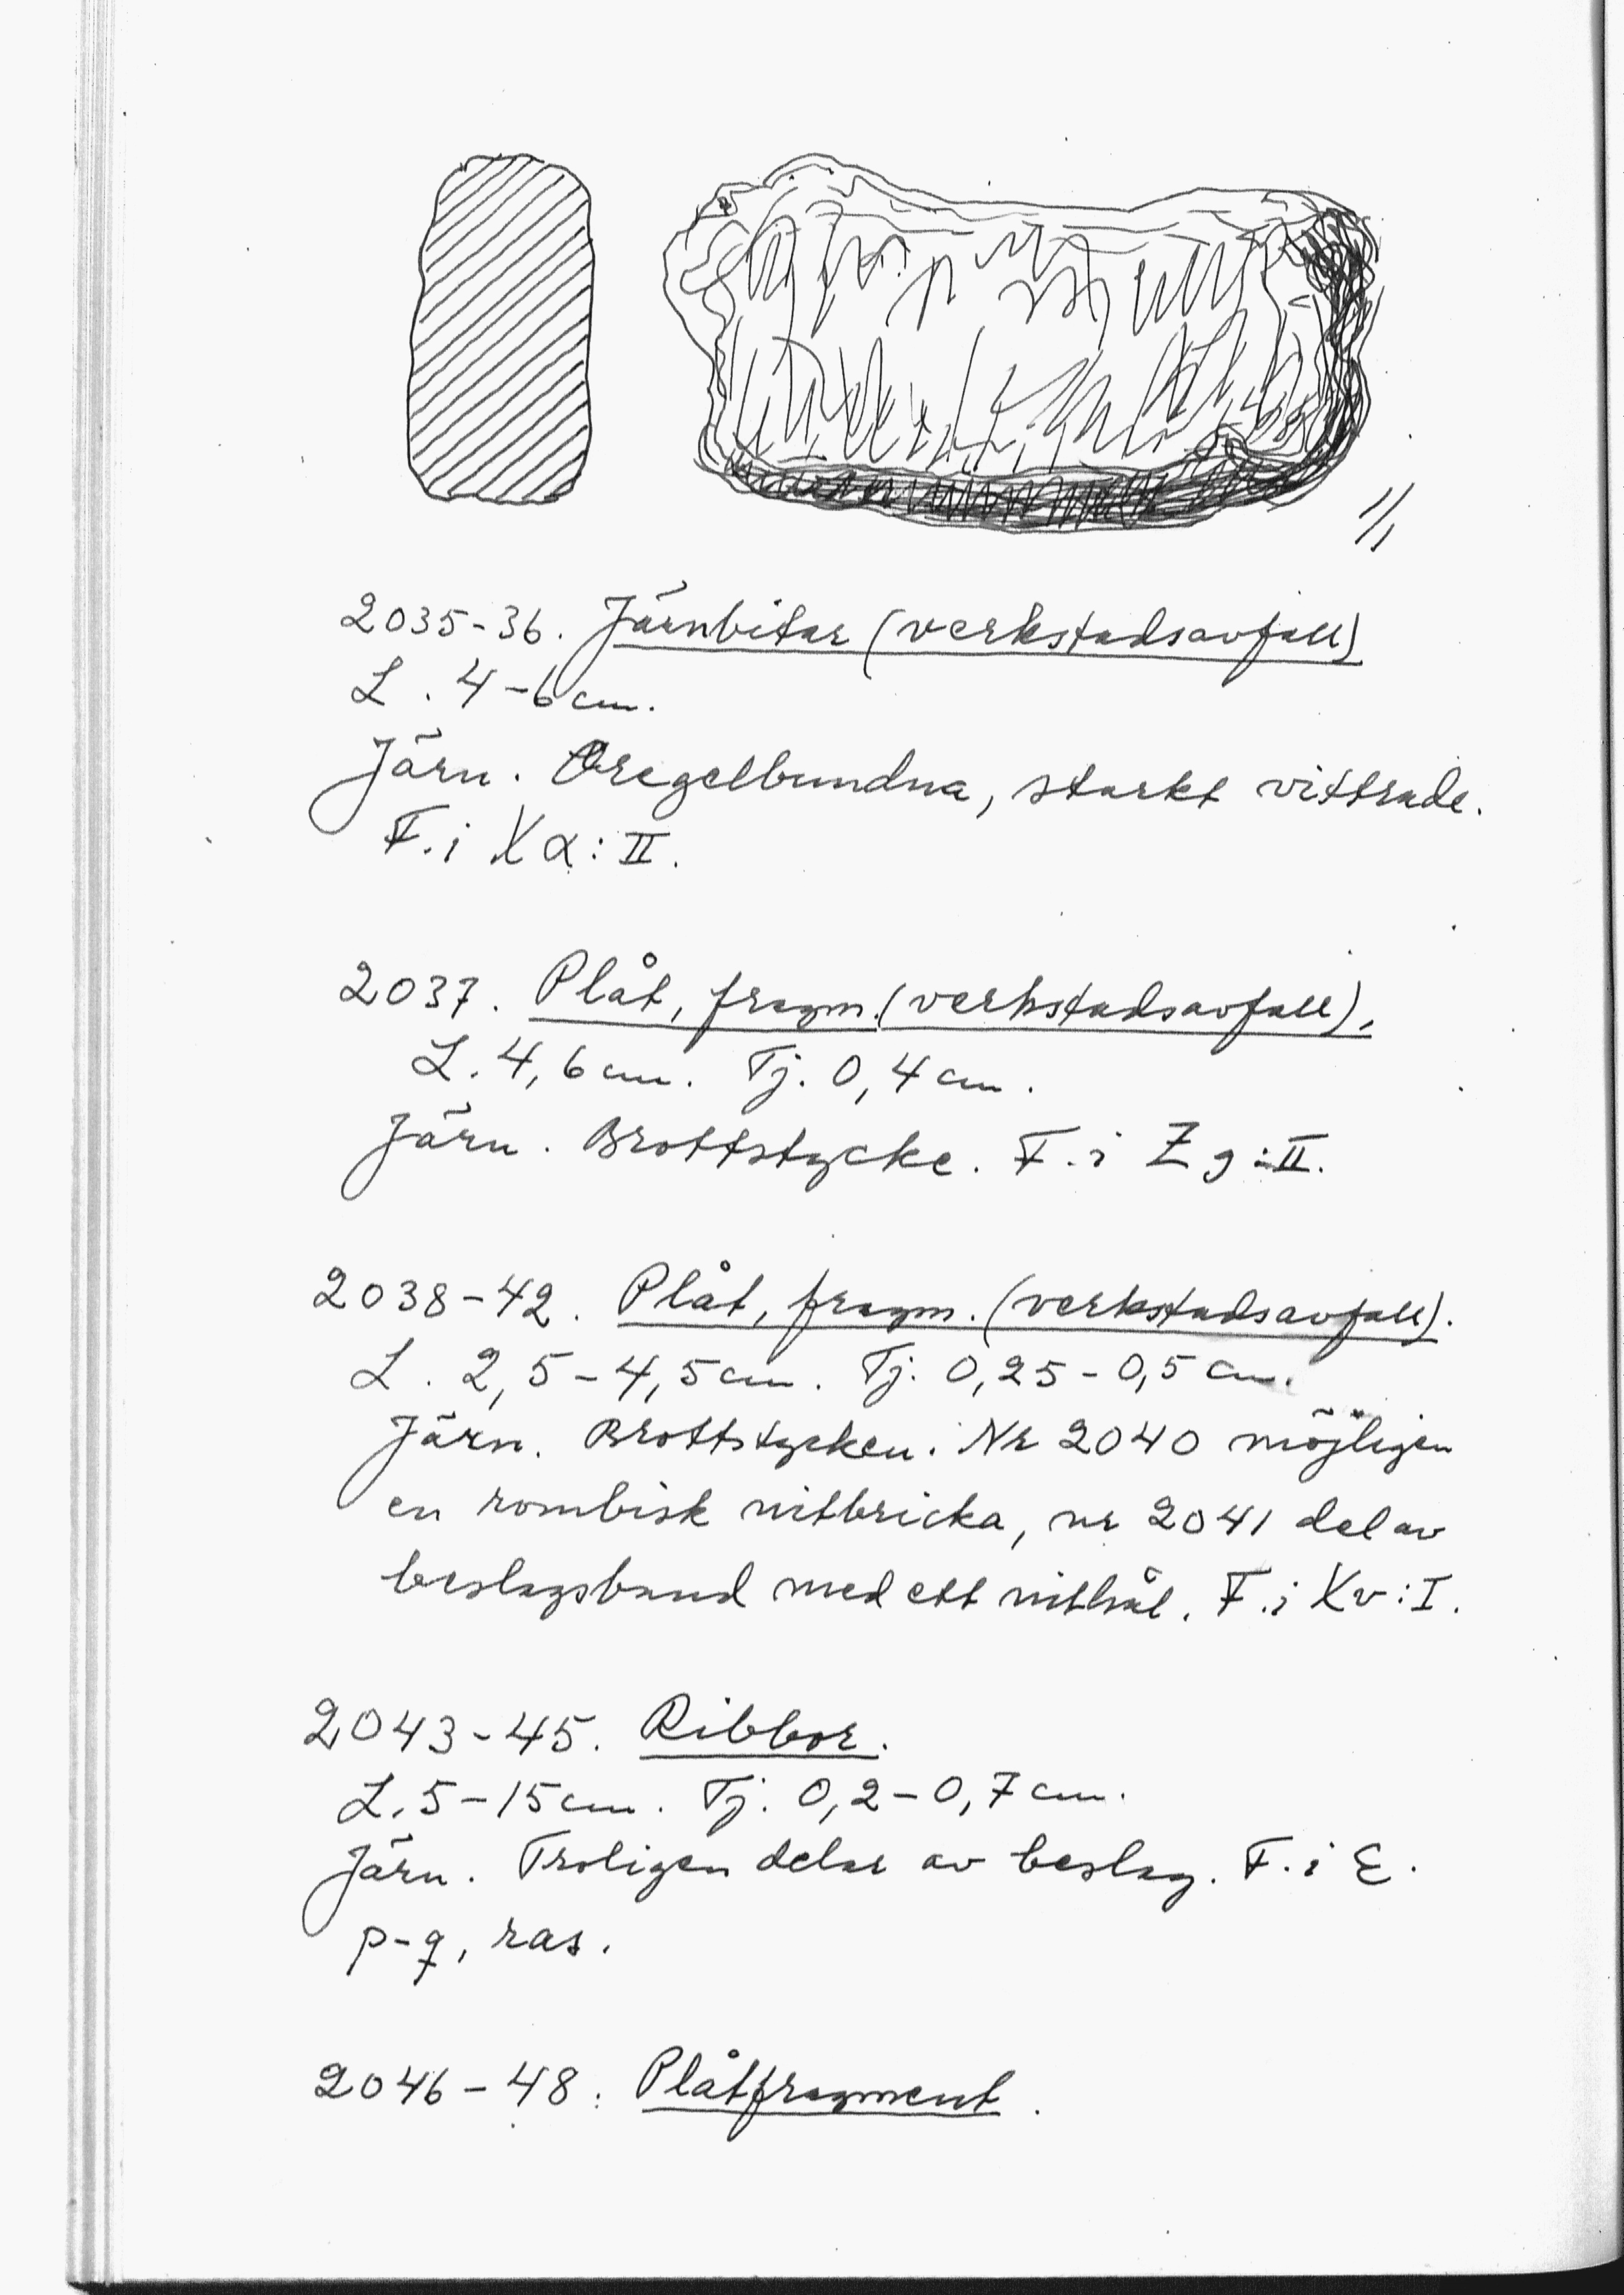 1/1
2035-36. Järnbitar (verkstadsavfall)
L. 4-6 cm.
Järn. Oregelbundna, starkt vittrade.
F. i X α : II.
2037. Plåt, fragm. (verkstadsavfall).
L. 4,6 cm. Tj. 0,4 cm.
Järn. Brottstycke. F. i Z g : II.
2038-42. Plåt, fragm. (verkstadsavfall).
L. 2,5-4,5 cm. Tj. 0,25-0,5 cm.
Järn. Brottstycken. Nr 2040 möjligen
en rombisk nitbricka, nr 2041 del av
beslagsband med ett nithål. F. i X v : I.
2043-45. Ribbor.
L. 5-15 cm. Tj. 0,2-0,7 cm.
Järn. Troligen delar av beslag. F. i E.
p-q, ras.
2046-48. Plåtfragment.